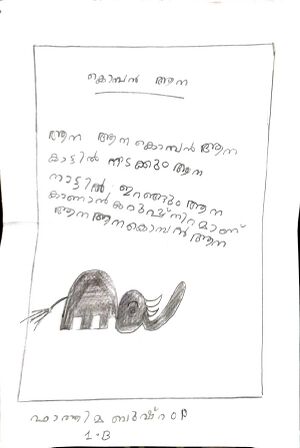 കൊമ്പൻ ആന
ആന ആന കൊമ്പൻ ആന
കാട്ടിൽ നടക്കും ആന
നാട്ടിൽ ഇറങ്ങും ആന
കാണാൻ കറുപ്പ് നിറമാണ്
ആന ആന കൊമ്പൻ ആന
ഫാത്തിമ ബുഷ്റ
1-B